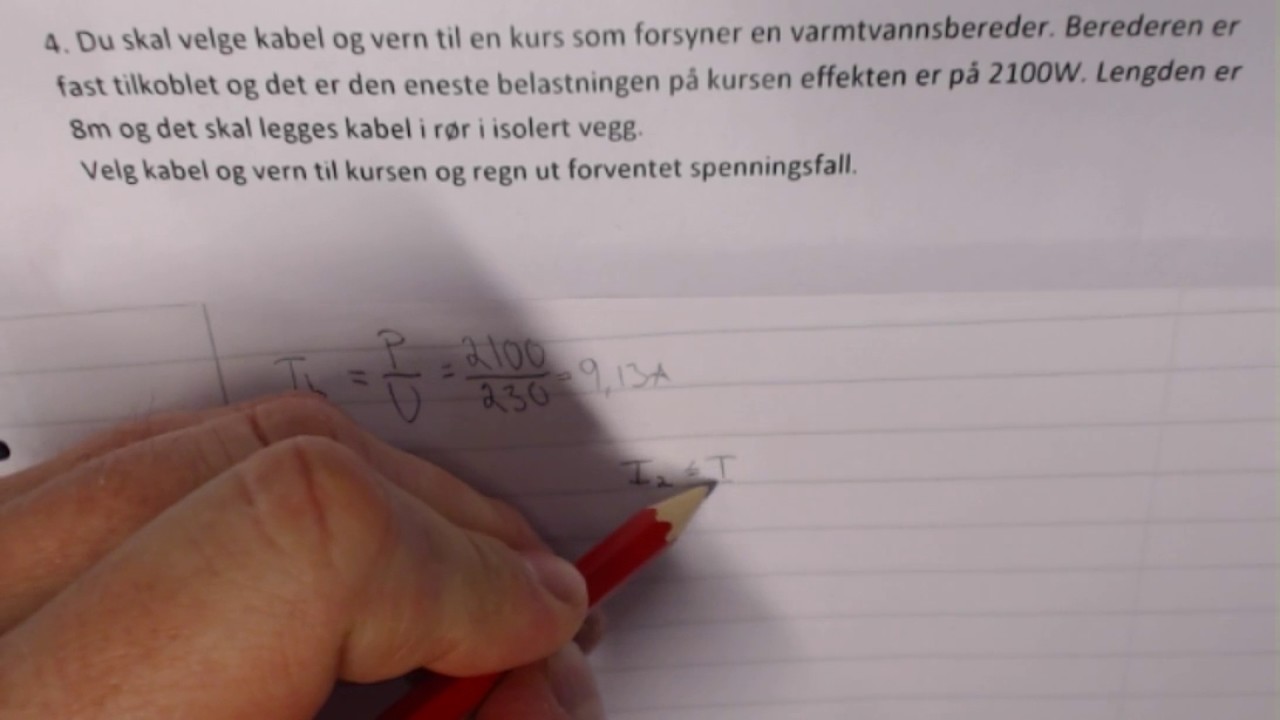 4. Du skal velge kabel og vern til en kurs som forsyner en varmtvannsbereder. Berederen er
fast tilkoblet og det er den eneste belastningen på kursen effekten er på 2100W. Lengden er
8m og det skal legges kabel i rør i isolert vegg.
Velg kabel og vern til kursen og regn ut forventet spenningsfall.
I_b = P/U = 2100/230 = 9,13A
I_2 ≤ I